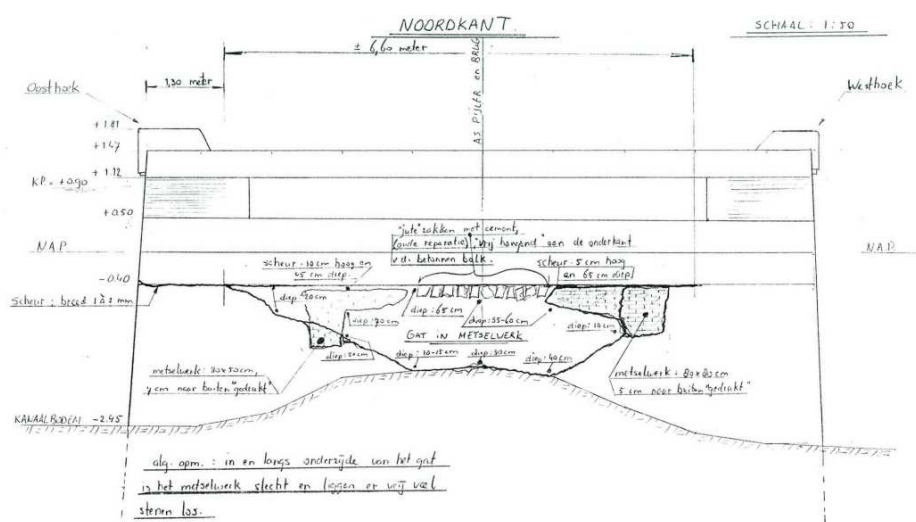 NOORDKANT.
SCHAAL: 1:50
± 6,60 meter
1,30 meter
AS PIJLER en BRUG
Oosthoek
Westhoek
+ 1.81
+ 1.47
+ 1.12
KP. = +0.90
+ 0.50
N.A.P.
N.A.P.
-0.40
"jute" zakken met cement,
(oude reparatie) "vrij hangend" aan de onderkant
v.d. betonnen balk.
scheur - 10cm hoog en
45 cm diep.
scheur - 5 cm hoog
en 65 cm diep
scheur: breed 1 à 2 mm
diep: 20cm
diep: 65 cm
diep: 55-60cm
diep: 10cm
GAT IN METSELWERK
diep: 10-15cm
diep: 40cm
metselwerk: 
7 cm naar buiten "gedrukt"
metselwerk: 
5 cm naar buiten "gedrukt"
KANAALBODEM -2.45
alg. opm.: in en langs onderzijde van het gat
is het metselwerk slecht en liggen er vrij veel
stenen los.